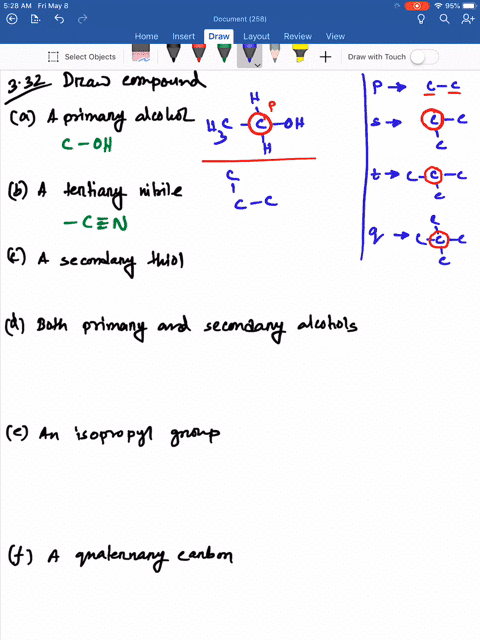 5:28 AM Fri May 8
95%
Document (258)
Home Insert Draw Layout Review View
Select Objects
Draw with Touch
3.32 Draw compound
(a) A primary alcohol
C - OH
H
P
H3C - C - OH
H
(b) A tertiary nitrile
- C ≡ N
C
C - C
(c) A secondary thiol
(d) Both primary and secondary alcohols
(e) An isopropyl group
(f) A quaternary carbon
P → C - C
S → C - C
C
t → C - C - C
C
q → C - C - C
C
C